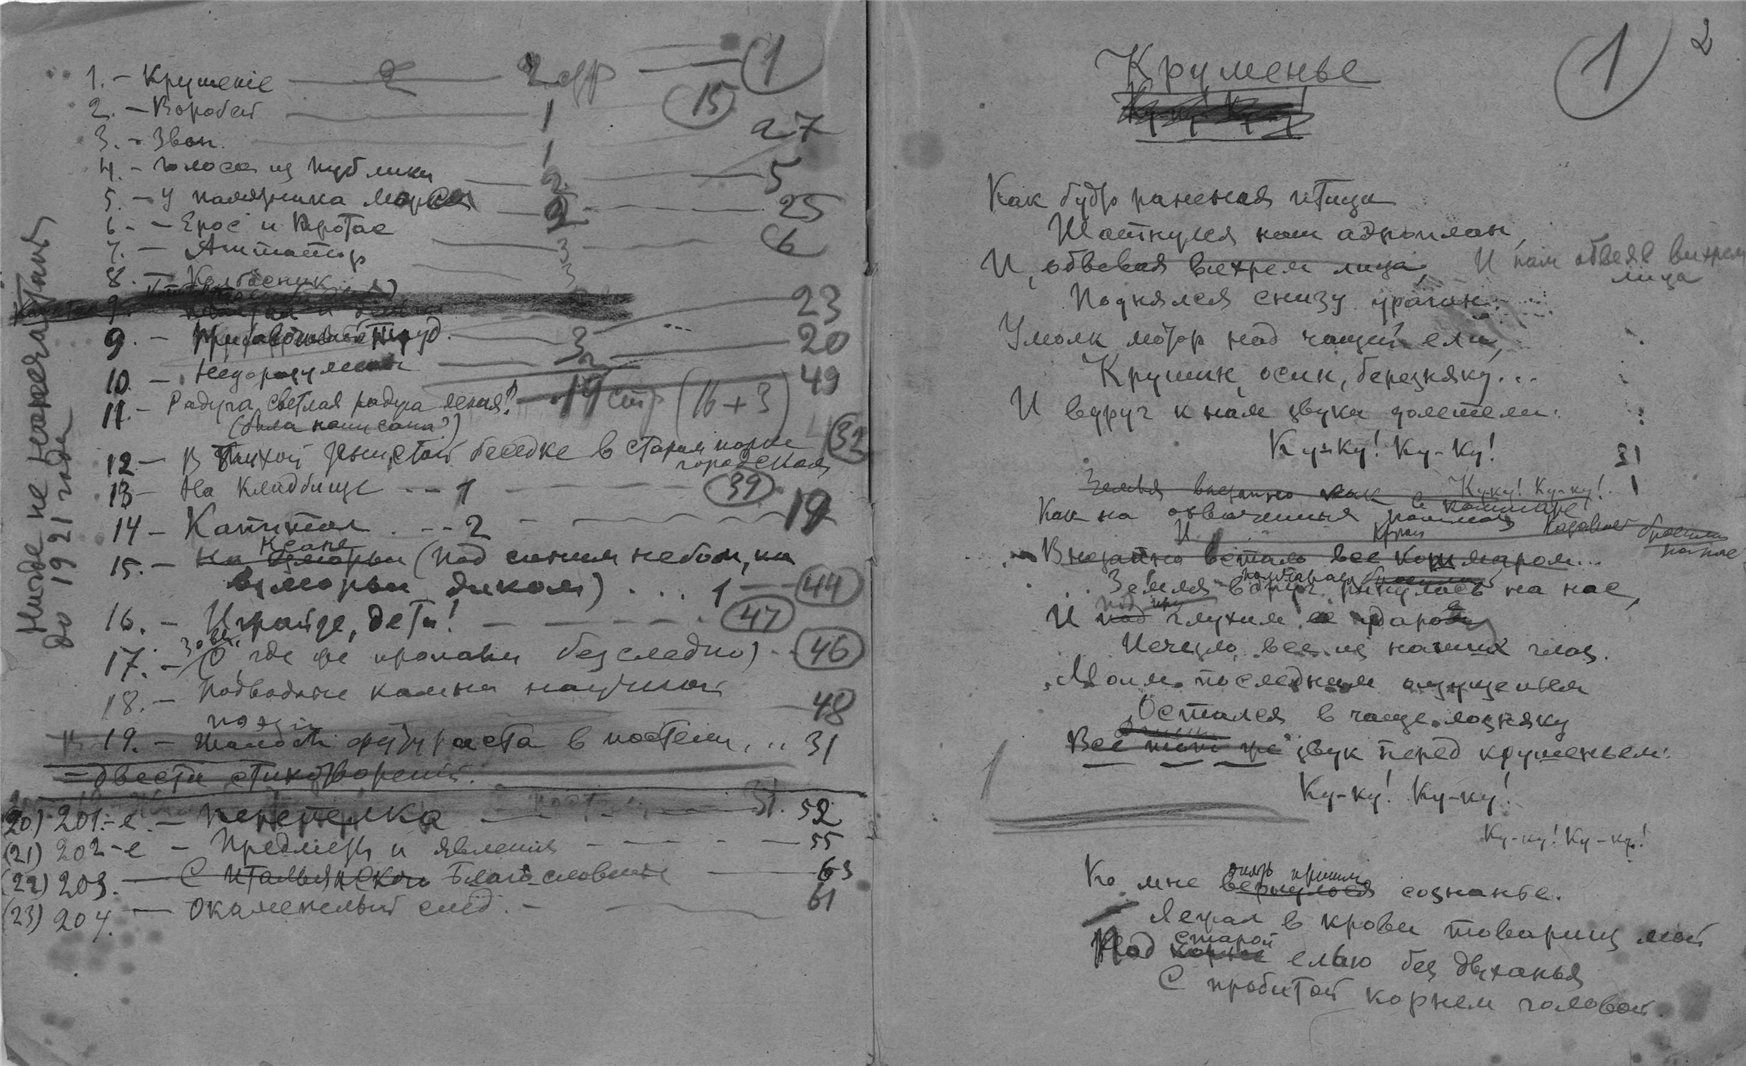 1. - Крушеніе 2 2 стр 1
2. - Воробей 1 15
3. - Звон. 1 27
4. - Голоса из публики 2 5
5. - У полярника Морса 2 25
6. - Ерос и Еротас 6
7. - Агитатор 3
8. - Колбасник 3
23
9. - труд. 3 20
10. - Недоразумение 2 49
11. - Радуга светлая радуга ясная? 19 стр (16+3)
(была написана?)
12 - В тихой тенистой беседке в старом парке 32
городская
13 - На кладбище - - 1 39
14 - Капитал . - - 2 19
Океане
15. - На взморьи (Под синим небом, на
взморьи диком) . . . 1 44
16. - Играйте, дети! 47
17. - Зовы
О, где же пропали безследно) 46
18. - Подводные камни научной
поэзіи 48
19. - Шалость футуриста в постели, .. 31
= двести стихотворений.
20) 201-е. - Перепелка 31. 52
(21) 202-е - Предметы и явления 55
(22) 203. С итальянского Благословение 63
(23) 204. - Окаменелый след. - 61
Нигде не напечатаны
до 1921 года
1 2
Крушенье
Как будто раненая птица
Шатнулся наш аэроплан,
И, обвевая вихрем лица, И нам обвеяв вихрем
лица
Поднялся снизу ураган.
Умолк мотор над чащей ели,
Крушин, осин, березняку...
И вдруг к нам звуки долетели:
Ку-ку! Ку-ку!
31
Земля внезапно как Ку-ку! Ку-ку! 1
Как на охваченных
Внезапно встало все кошмаром...
Земля вдруг ринулась на нас,
И под глухим ударом
Исчезло все из наших глаз.
Моим последним ощущеньем
Остался в чаще лозняку
Все тот же звук перед крушеньем:
Ку-ку! Ку-ку!
Ку-ку! Ку-ку!
опять пришло
Ко мне вернулося сознанье.
Лежал в крови товарищ мой
старой
Под елью без дыханья
С пробитой корнем головой.